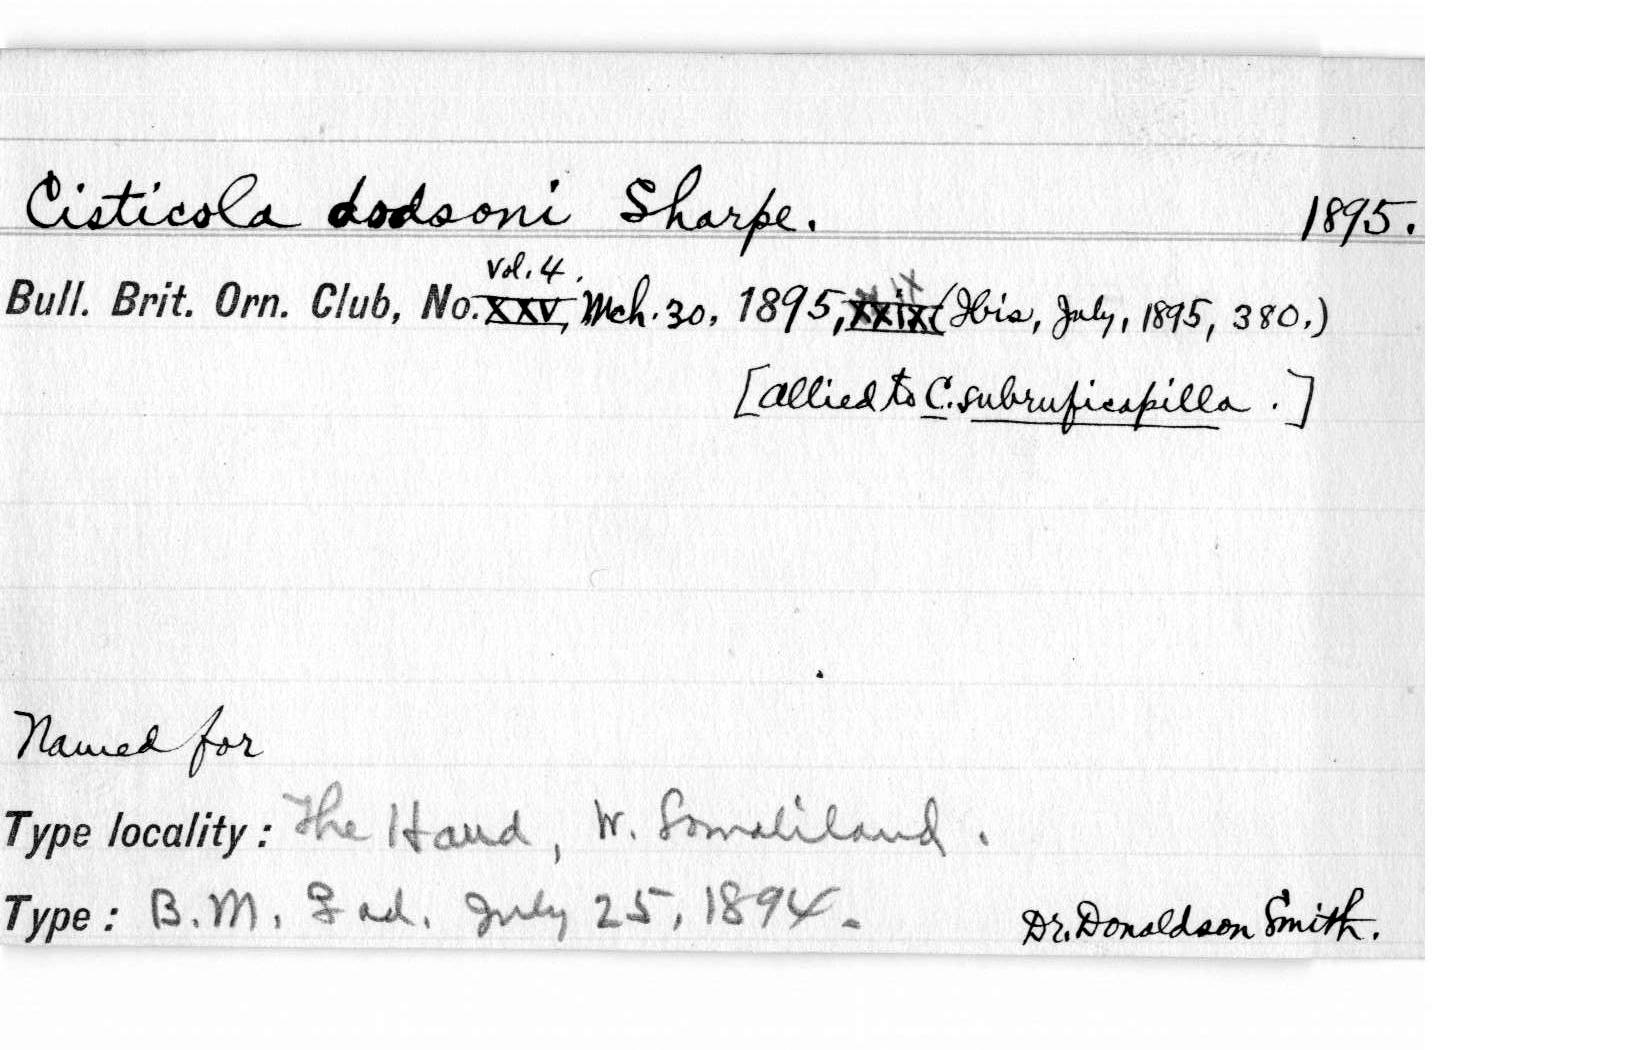 Cisticola dodsoni Sharpe. 1895.
vol. 4.
Bull. Brit. Orn. Club, No. XXV, Mch. 30, 1895, xxix (Ibis, July, 1895, 380.)
[allied to C. subruficapilla.]
Named for
Type locality: The Haud, W. Somaliland.
Type: B.M. ad. July 25, 1894. Dr. Donaldson Smith.